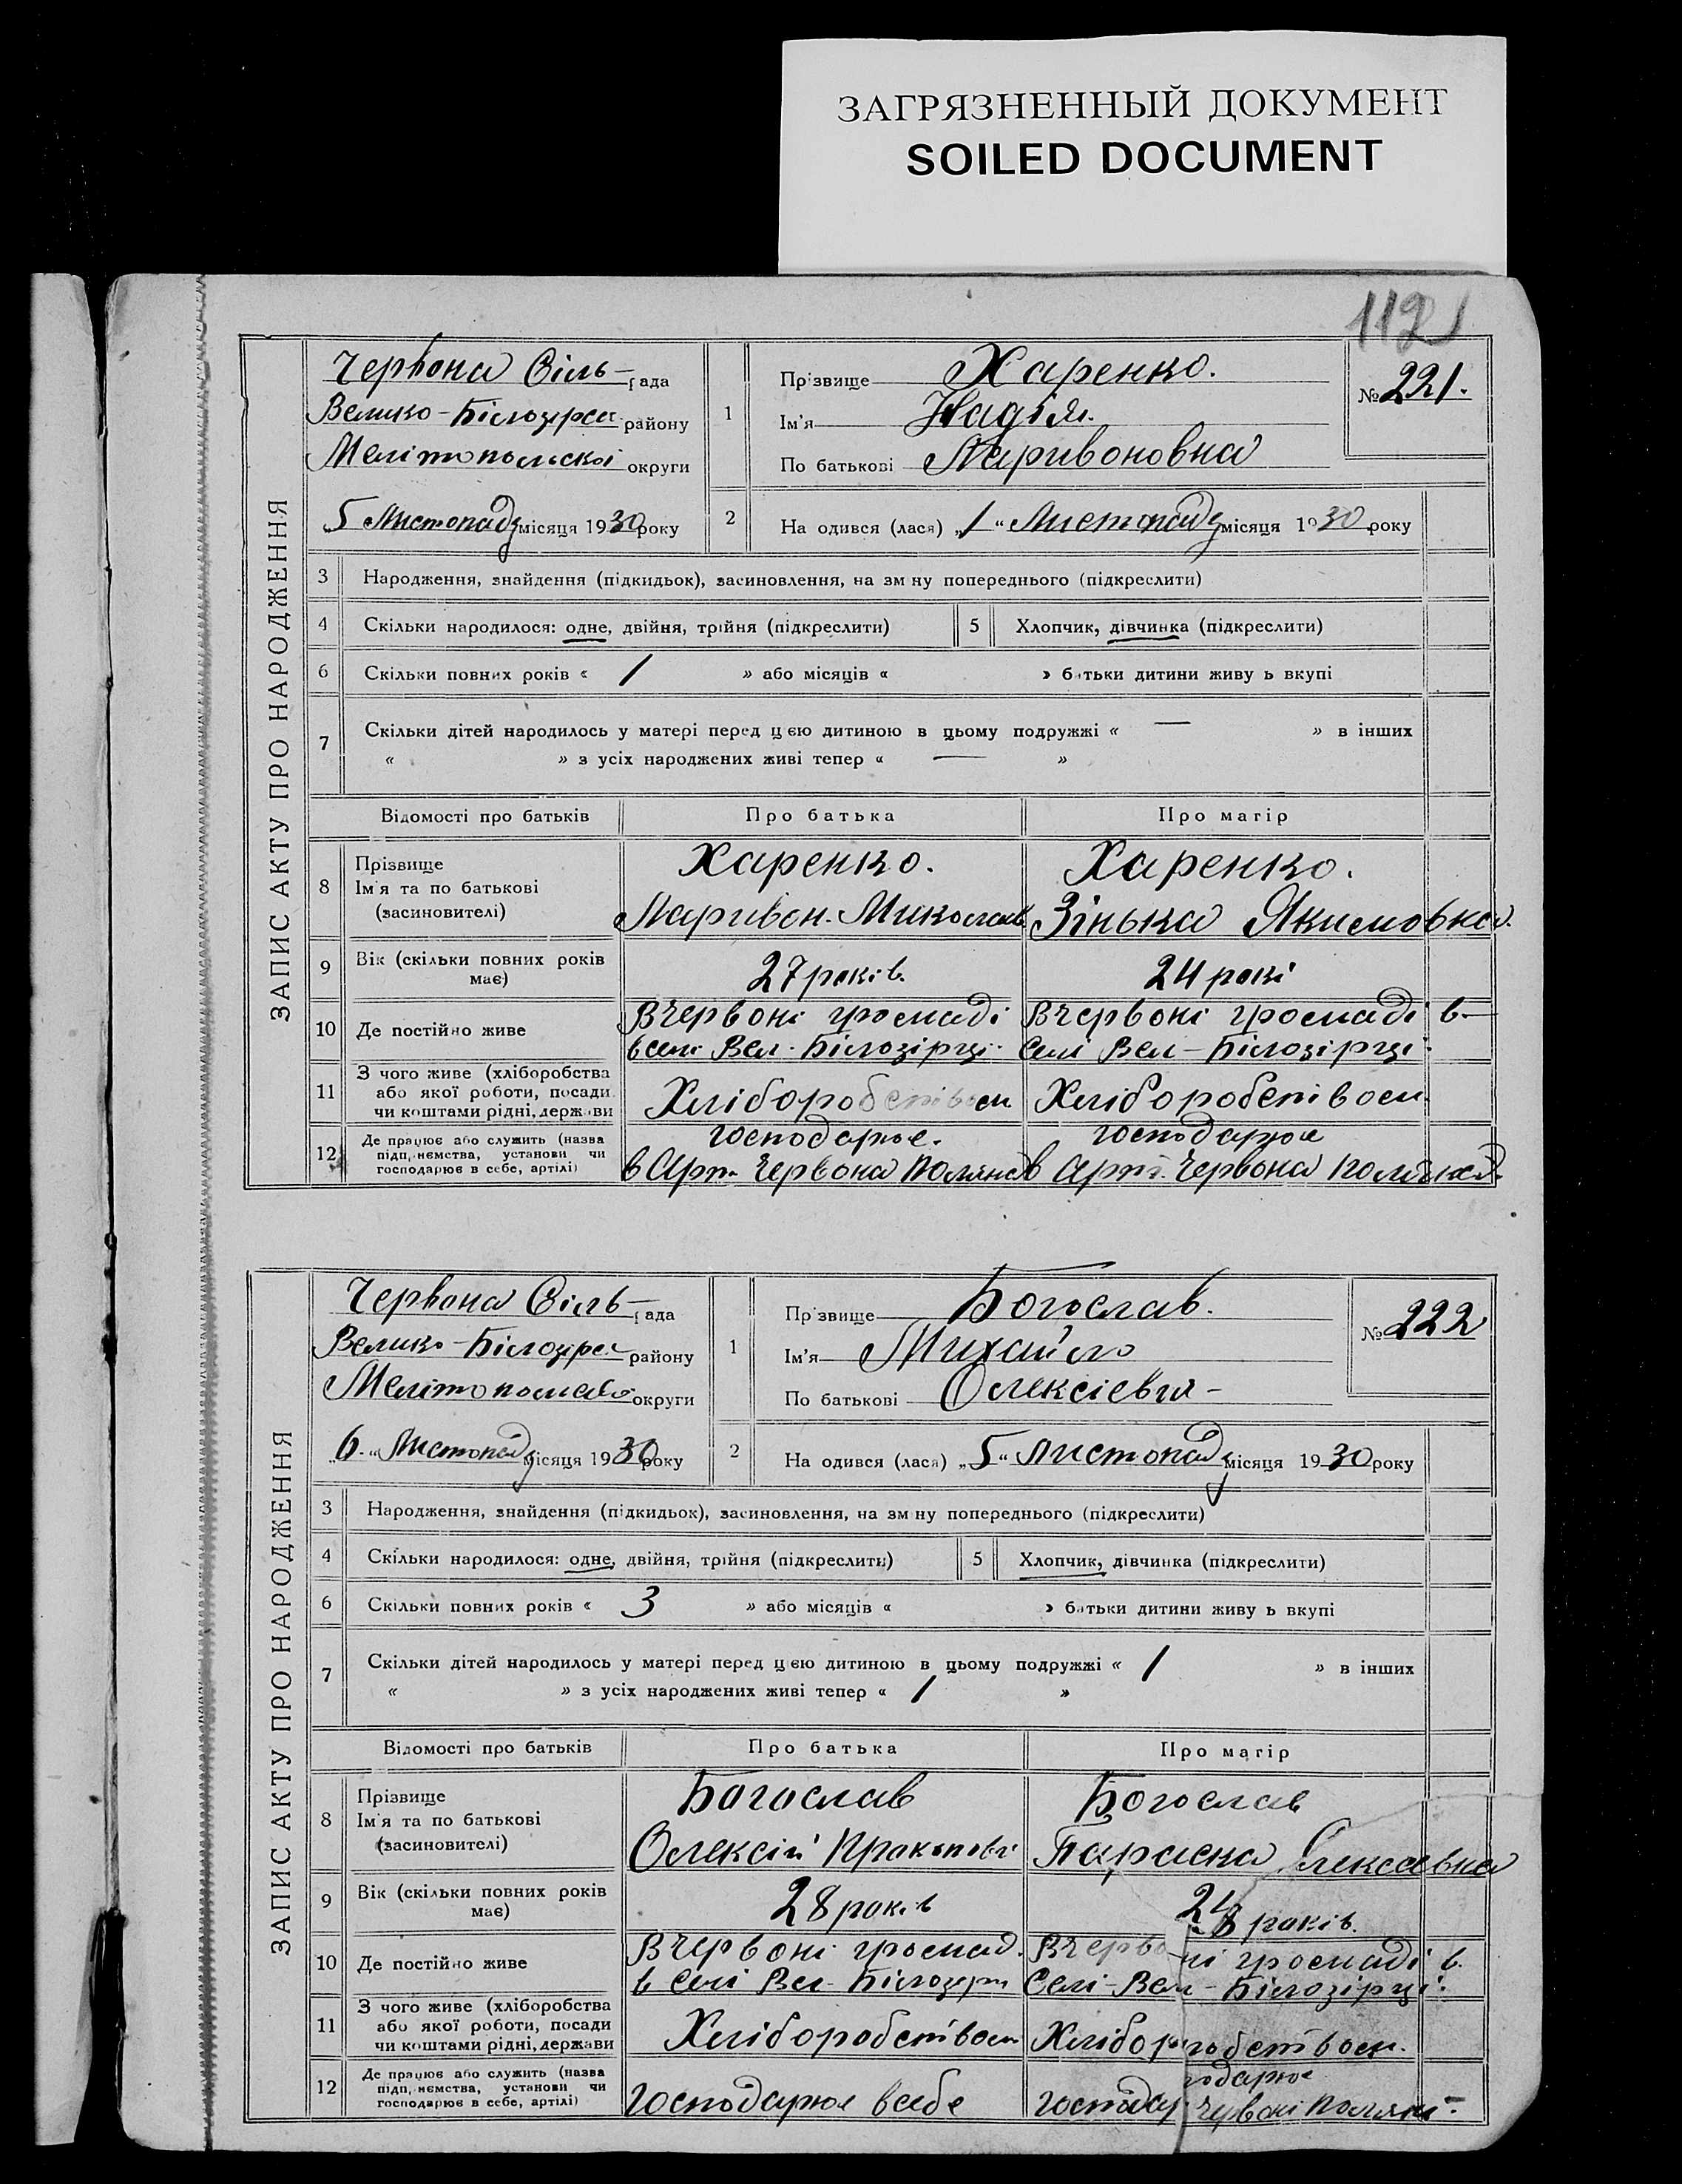 ЗАГРЯЗНЕННЫЙ ДОКУМЕНТ
SOILED DOCUMENT
112
ЗАПИС АКТУ ПРО НАРОДЖЕННЯ
Червона Сіль- рада
Велико-Білозірсь району
Мелітопольскоі округи
„5 Листопада місяця 1930 року
1
Прізвище Харенко.
Ім'я Надія.
По батькові Ларивоновна
№ 221.
2 На одився (лася) „1“ Листопада місяця 1930 року
3 Народження, знайдення (підкидьок), засиновлення, на зм ну попереднього (підкреслити)
4 Скільки народилося: одне, двійня, трійня (підкреслити) 5 Хлопчик, дівчинка (підкреслити)
6 Скільки повних років « 1 » або місяців « » батьки дитини живу ь вкупі
7 Скільки дітей народилось у матері перед цією дитиною в цьому подружжі « — » в інших
« » з усіх народжених живі тепер « — »
Відомості про батьків Про батька Про матір
8 Прізвище
Ім'я та по батькові
(засиновителі)
Харенко. Харенко.
Ларивон. Миколаєв. Зінька Якимовна.
9 Вік (скільки повних років має) 27 років. 24 рокі
10 Де постійно живе
Вчервоні громаді Вчервоні громаді в-
в селі Вел-Білозірці. Селі Вел-Білозірці.
11 З чого живе (хліборобства
або якої роботи, посади
чи коштами рідні, держави
Хліборобством Хліборобством
12 Де працює або служить (назва
підп, иємства, установи чи
господарює в себе, артілі)
господарює. господарює
в Арт. Червона Поляна в Арт. Червона Поляна.
ЗАПИС АКТУ ПРО НАРОДЖЕННЯ
Червона Сіль- рада
Велико-Білозірсь району
Мелітопольсько округи
„6.“ Листопада місяця 1930 року
1
Прізвище Богослав.
Ім'я Михайло
По батькові Олексієвич-
№ 222
2 На одився (лася) „5“ Листопада місяця 1930 року
3 Народження, знайдення (підкидьок), засиновлення, на зм ну попереднього (підкреслити)
4 Скільки народилося: одне, двійня, трійня (підкреслити) 5 Хлопчик, дівчинка (підкреслити)
6 Скільки повних років « 3 » або місяців « » батьки дитини живу ь вкупі
7 Скільки дітей народилось у матері перед цією дитиною в цьому подружжі « 1 » в інших
« » з усіх народжених живі тепер « 1 »
Відомості про батьків Про батька Про матір
8 Прізвище
Ім'я та по батькові
(засиновителі)
Богослав Богослав
Олексій Прокопові Параска Олексаевна
9 Вік (скільки повних років має) 28 років років.
10 Де постійно живе
Вчервоні громад. Вчервоні громаді в.
в Селі Вел-Білозерц Селі-Вел-Білозірці.
11 З чого живе (хліборобства
або якої роботи, посади
чи коштами рідні, держави
Хліборобством Хліборобством.
12 Де працює або служить (назва
підп, иємства, установи чи
господарює в себе, артілі)
Господарює в себе господарює Червоні Поляні.